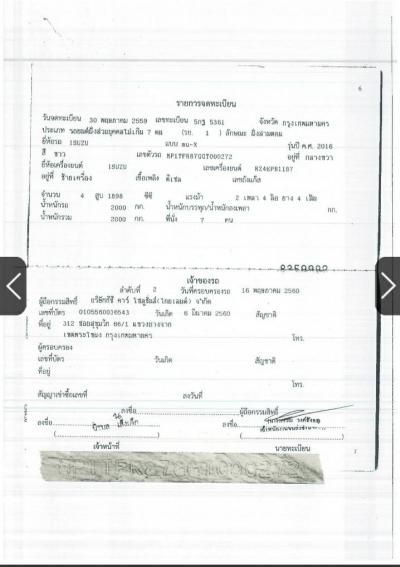 6
รายการจดทะเบียน
วันจดทะเบียน 30 พฤษภาคม 2559 เลขทะเบียน 5กฐ 5361 จังหวัด กรุงเทพมหานคร
ประเภท รถยนต์นั่งส่วนบุคคลไม่เกิน 7 คน (รย. 1 ) ลักษณะ นั่งสามตอน
ยี่ห้อรถ ISUZU แบบ mu-X รุ่นปี ค.ศ. 2016
สี ขาว เลขตัวรถ อยู่ที่ กลางขวา
ยี่ห้อเครื่องยนต์ ISUZU เลขเครื่องยนต์
อยู่ที่ ซ้ายเครื่อง เชื้อเพลิง ดีเซล เลขถังแก๊ส
จำนวน 4 สูบ 1898 ซีซี แรงม้า 2 เพลา 4 ล้อ ยาง 4 เส้น
น้ำหนักรถ 2000 กก. น้ำหนักบรรทุก/น้ำหนักลงเพลา กก.
น้ำหนักรวม 2000 กก. ที่นั่ง 7 คน
เจ้าของรถ
ลำดับที่ 2 วันที่ครอบครองรถ 16 พฤษภาคม 2560
ผู้ถือกรรมสิทธิ์ จำกัด
เลขที่บัตร 0105560036543 วันเกิด 6 มีนาคม 2560 สัญชาติ
ที่อยู่ 312 ซอยสุขุมวิท 66/1 แขวงบางจาก
เขตพระโขนง กรุงเทพมหานคร โทร.
ผู้ครอบครอง
เลขที่บัตร วันเกิด สัญชาติ
ที่อยู่
โทร.
สัญญาเช่าซื้อเลขที่ ลงวันที่
ลงชื่อ ผู้ถือกรรมสิทธิ์
ลงชื่อ ลงชื่อ
เจ้าหน้าที่ นายทะเบียน
7